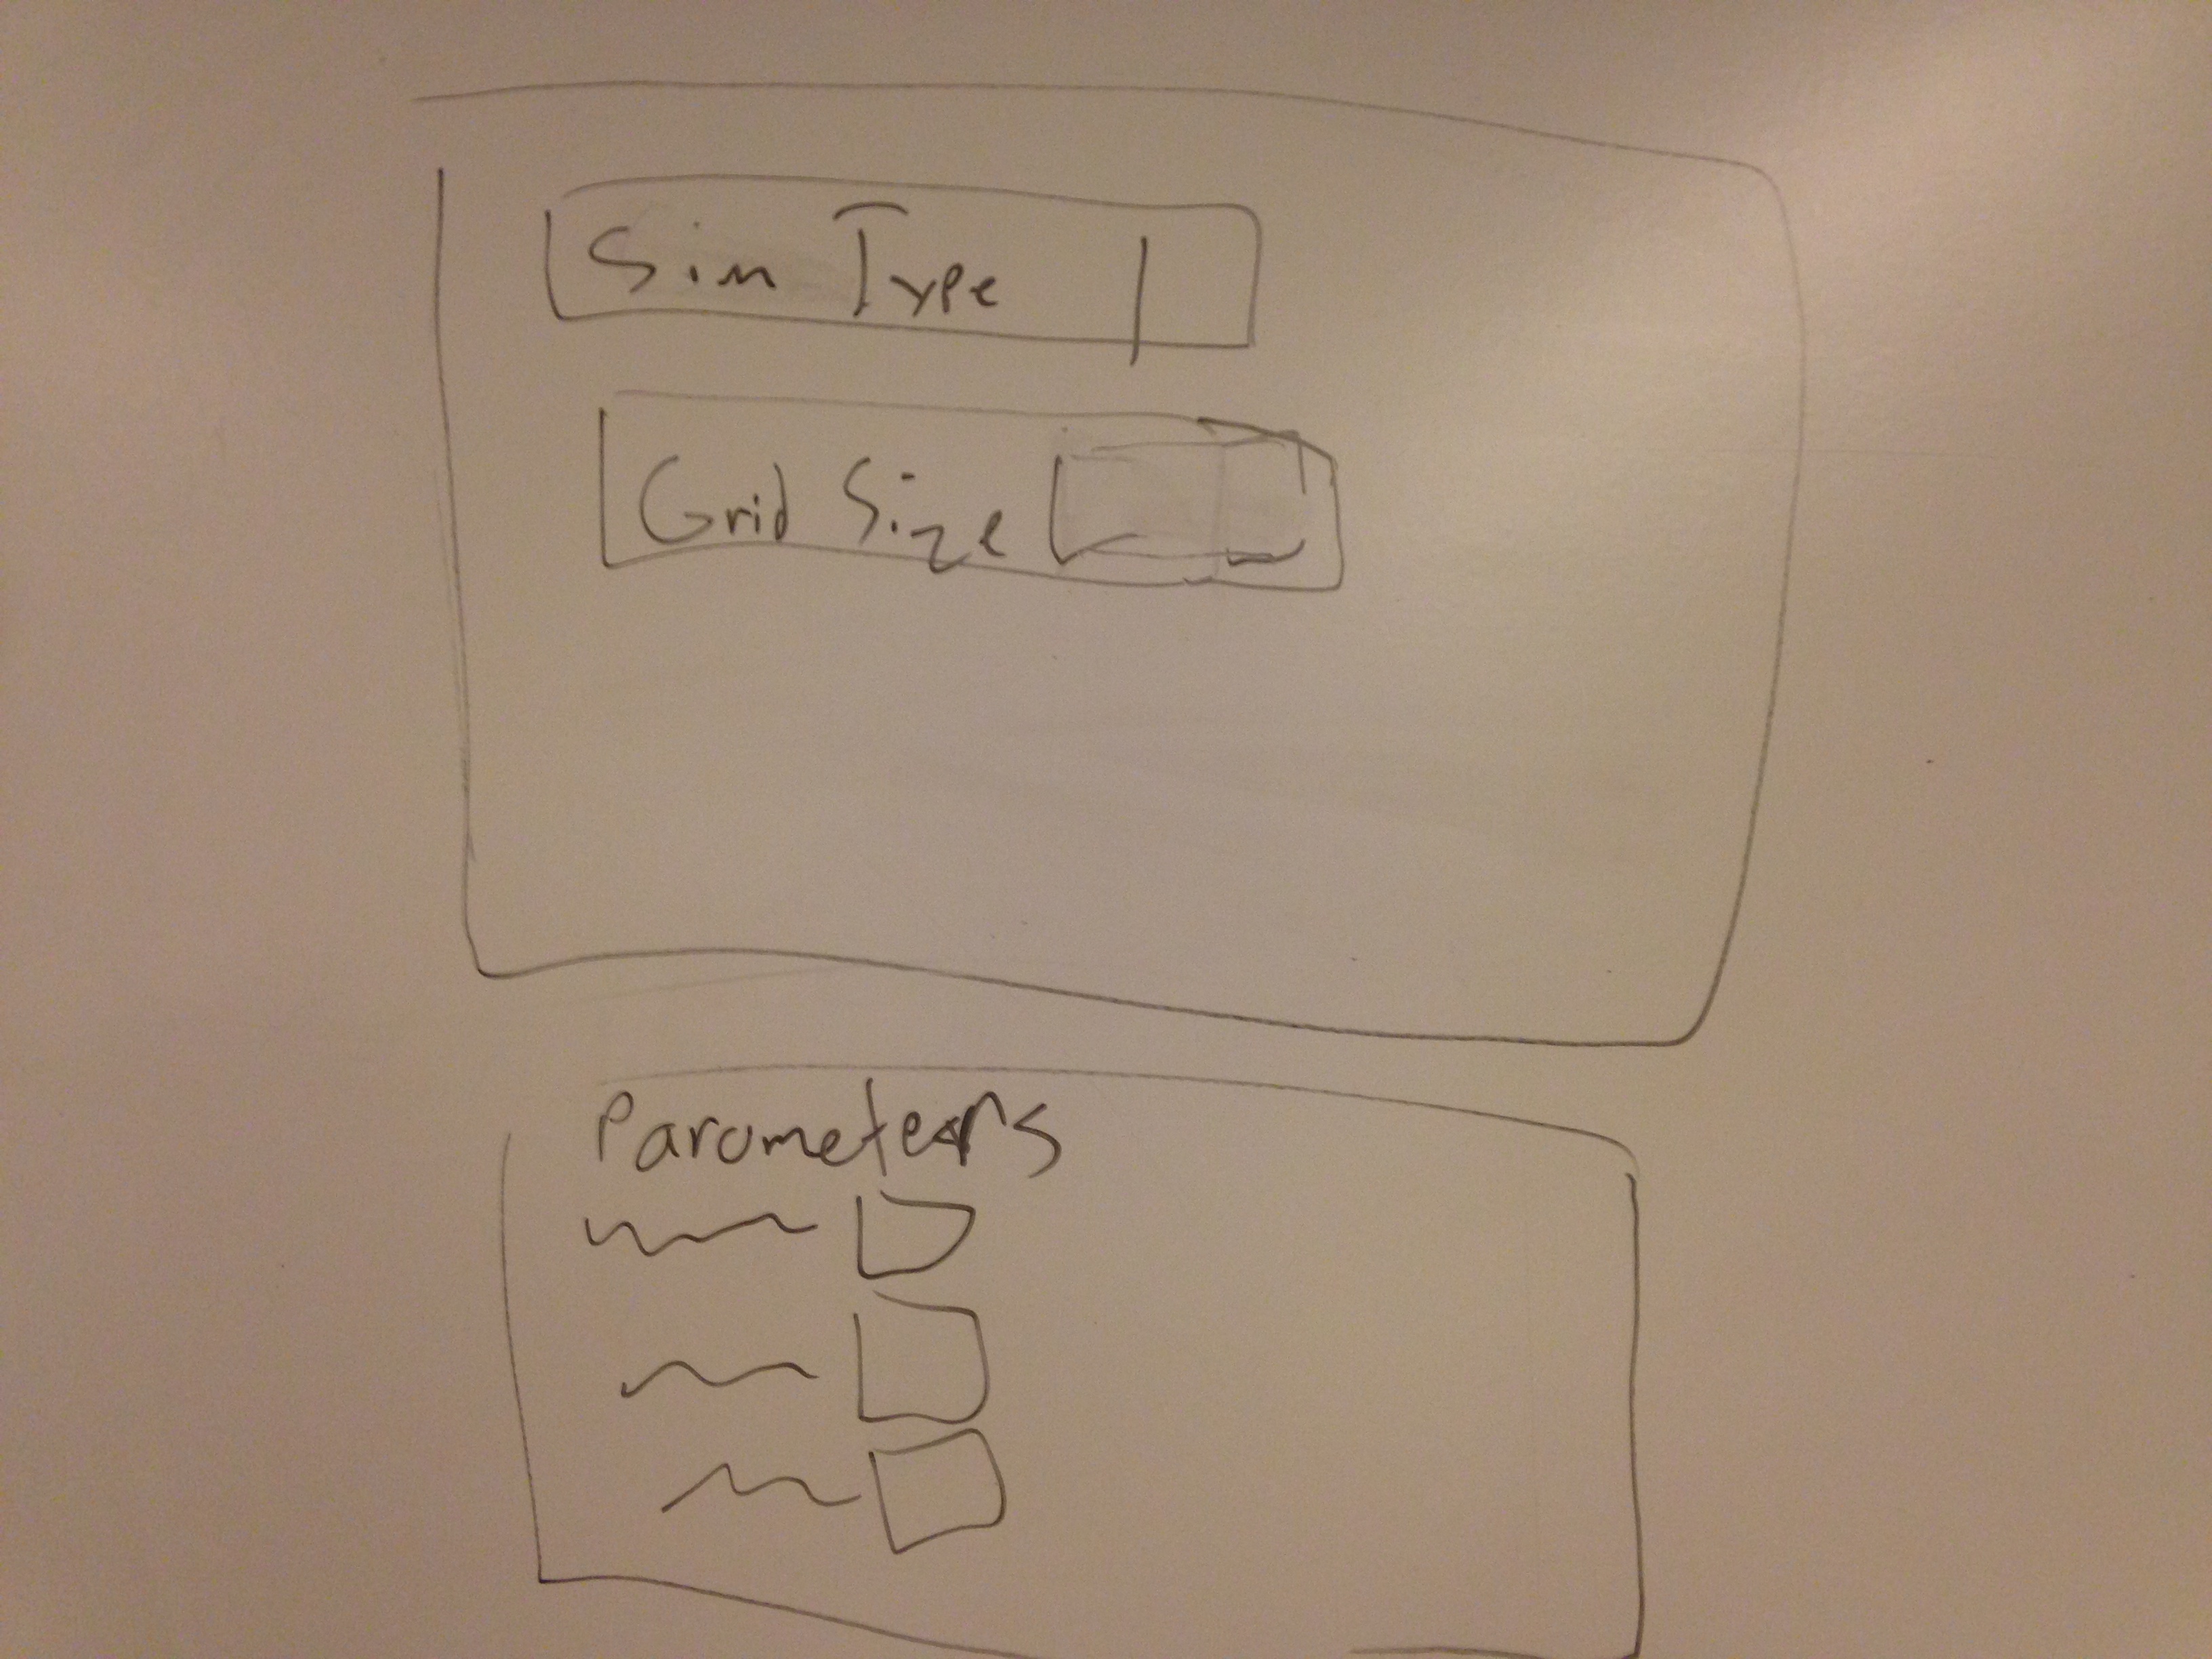 Sim Type
Grid Size
Parameters